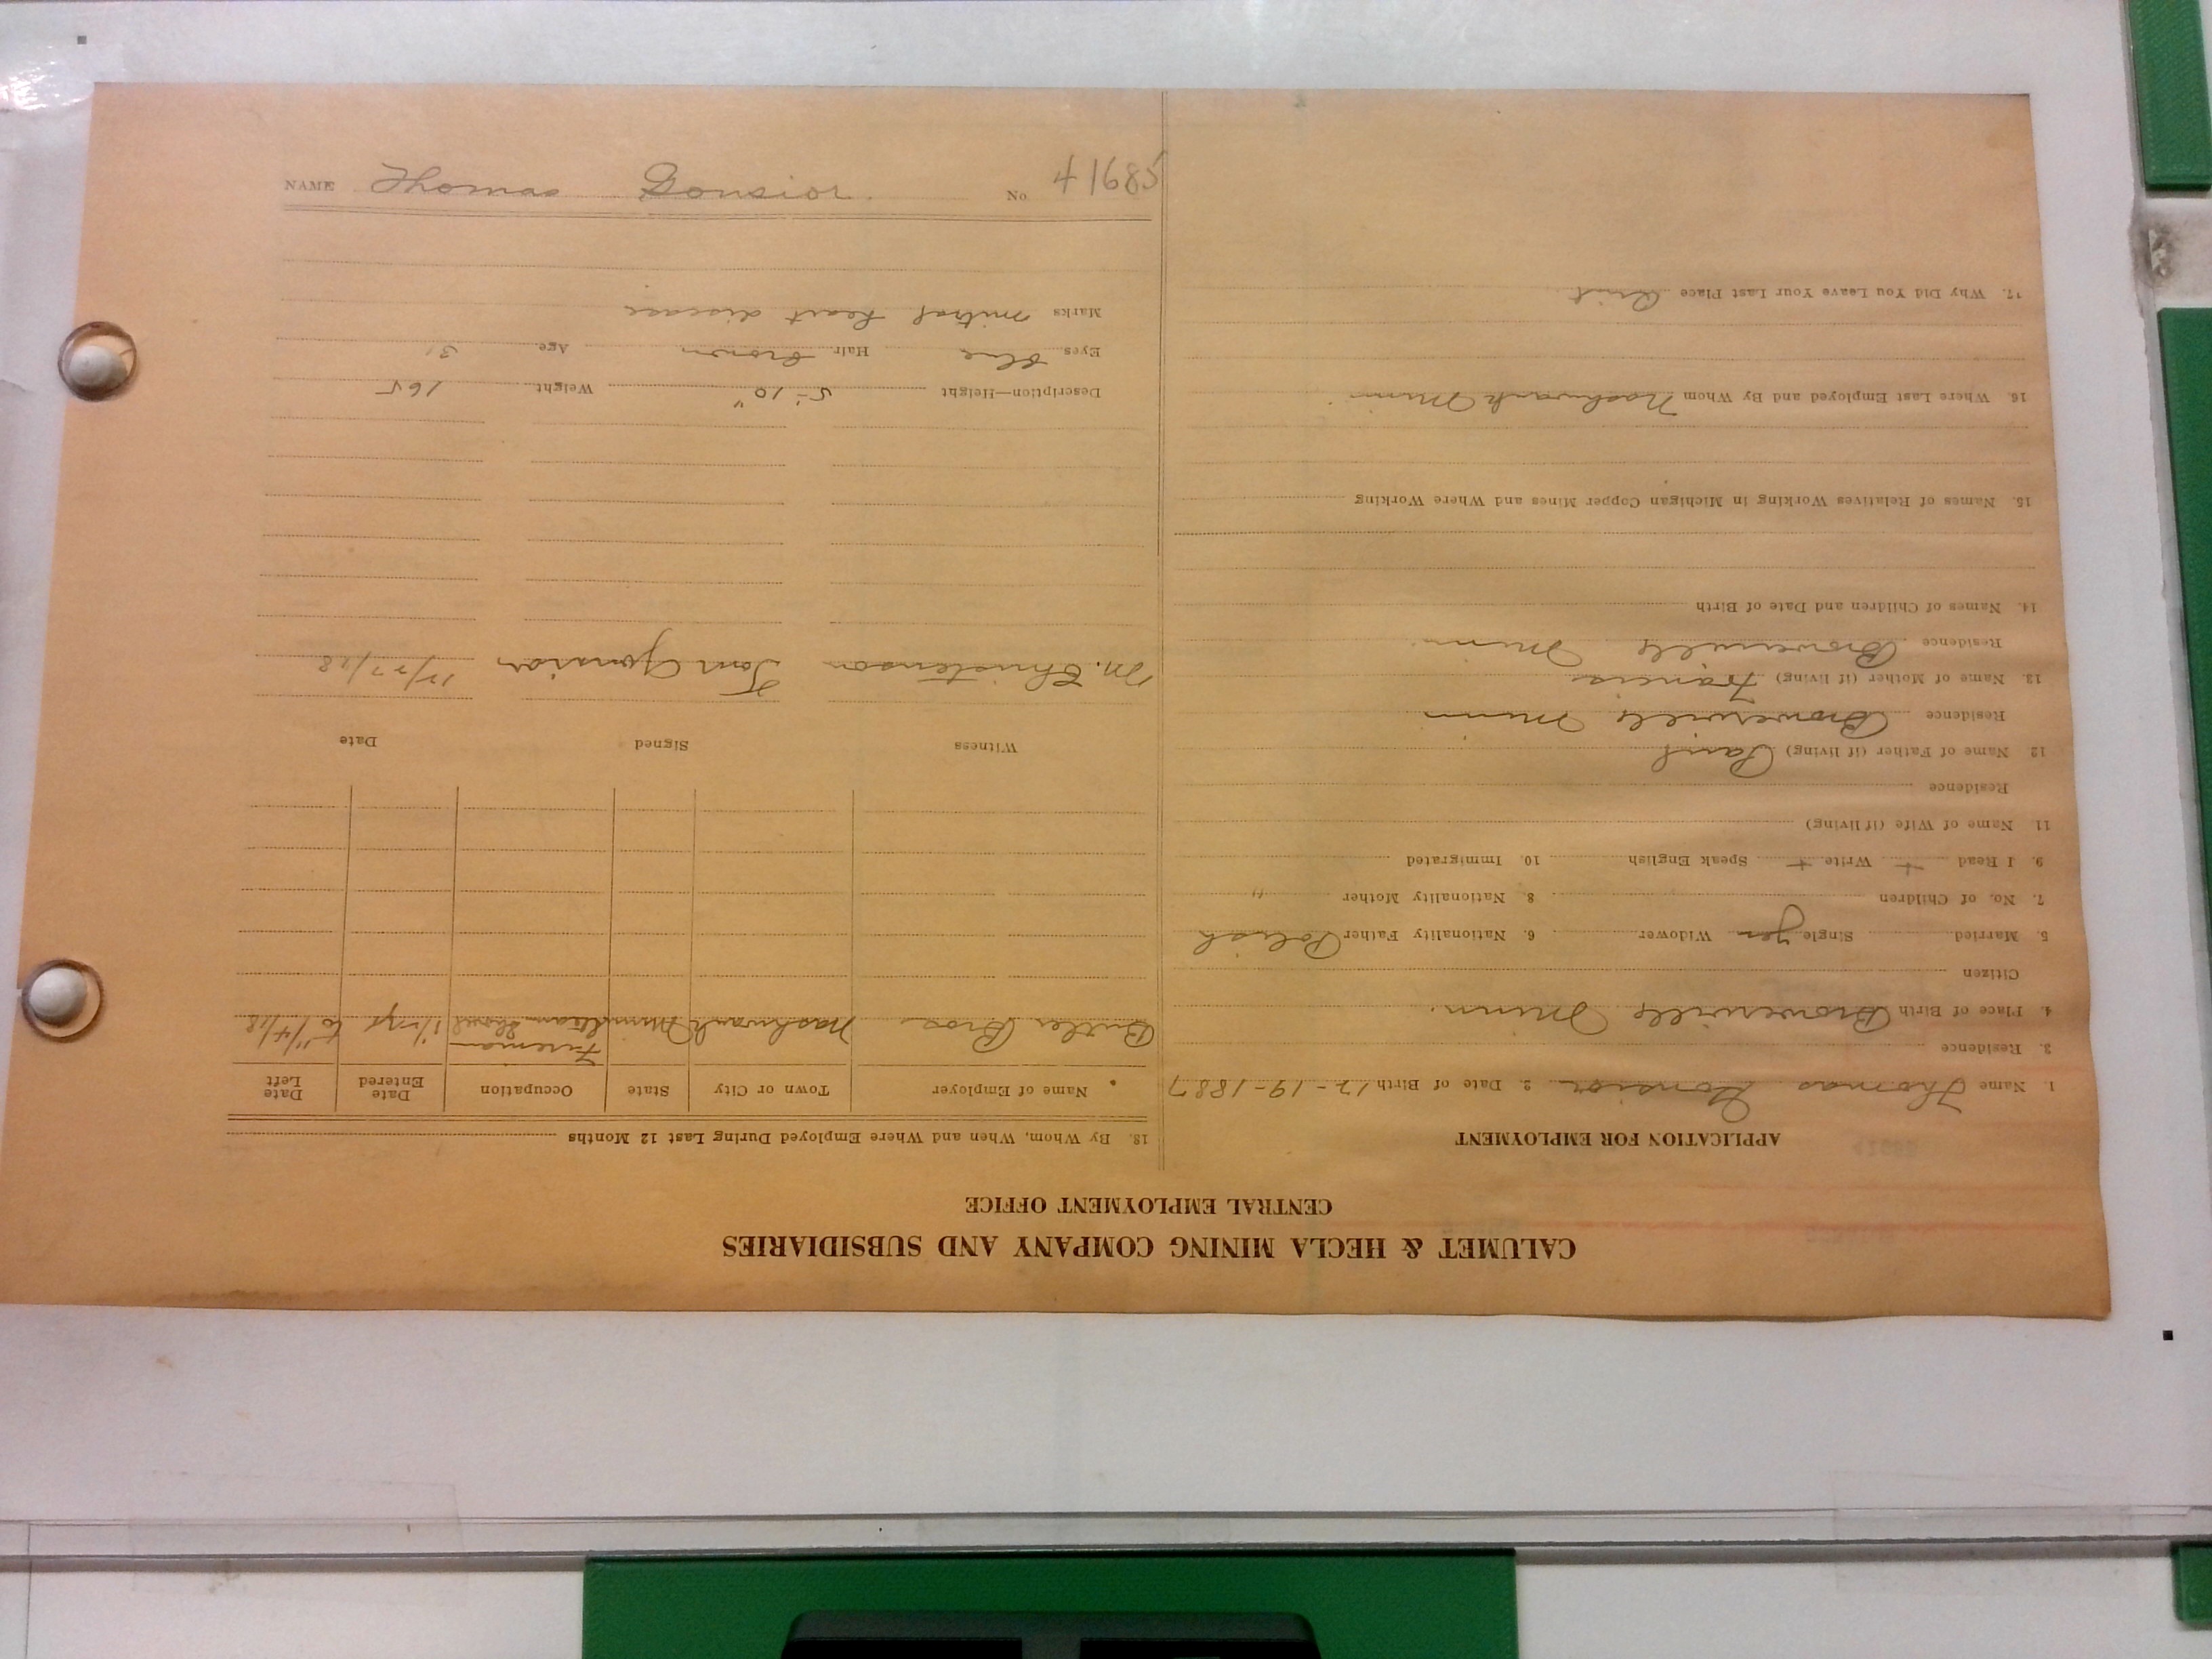 CALUMET & HECLA MINING COMPANY AND SUBSIDIARIES
CENTRAL EMPLOYMENT OFFICE
APPLICATION FOR EMPLOYMENT
1. Name Thomas Gonsior 2. Date of Birth 12-19-1887
3. Residence
4. Place of Birth Browerville Minn.
Citizen
5. Married Single yes Widower 6. Nationality Father Polish
7. No. of Children 8. Nationality Mother "
9. I Read + Write + Speak English 10. Immigrated
11. Name of Wife (if living)
Residence
12 Name of Father (if living) Paul
Residence Browerville Minn
13. Name of Mother (if living) Francis
Residence Browerville Minn
14. Names of Children and Date of Birth
15. Names of Relatives Working in Michigan Copper Mines and Where Working
16. Where Last Employed and By Whom Nashwauk Minn
17. Why Did You Leave Your Last Place Quit
18. By Whom, When and Where Employed During Last 12 Months
Name of Employer Town or City State Occupation Date Entered Date Left
Butler Bros Nashwauk Minn Fireman Steam Shovel 1 1/2 yrs to 11/4/18
Witness Signed Date
M. Christenson Tom Gonsior 11/27/18
Description—Height 5'-10" Weight 165
Eyes blue Hair brown Age 31
Marks mitral heart disease
NAME Thomas Gonsior. No 41685